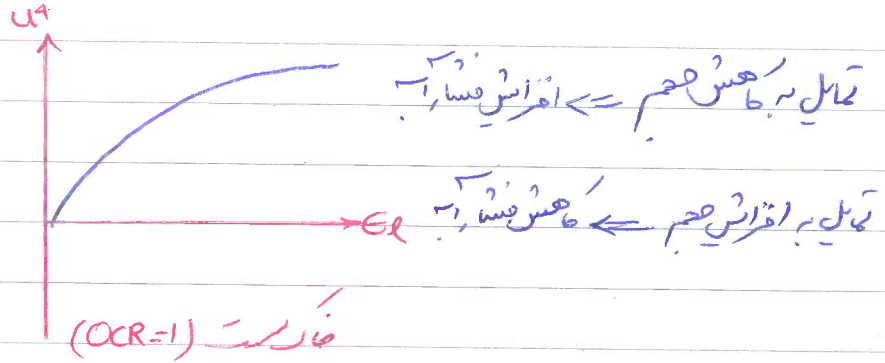 u
تمایل به کاهش حجم => افزایش فشار آب
تمایل به افزایش حجم => کاهش فشار آب
εl
خاک سست (OCR=1)